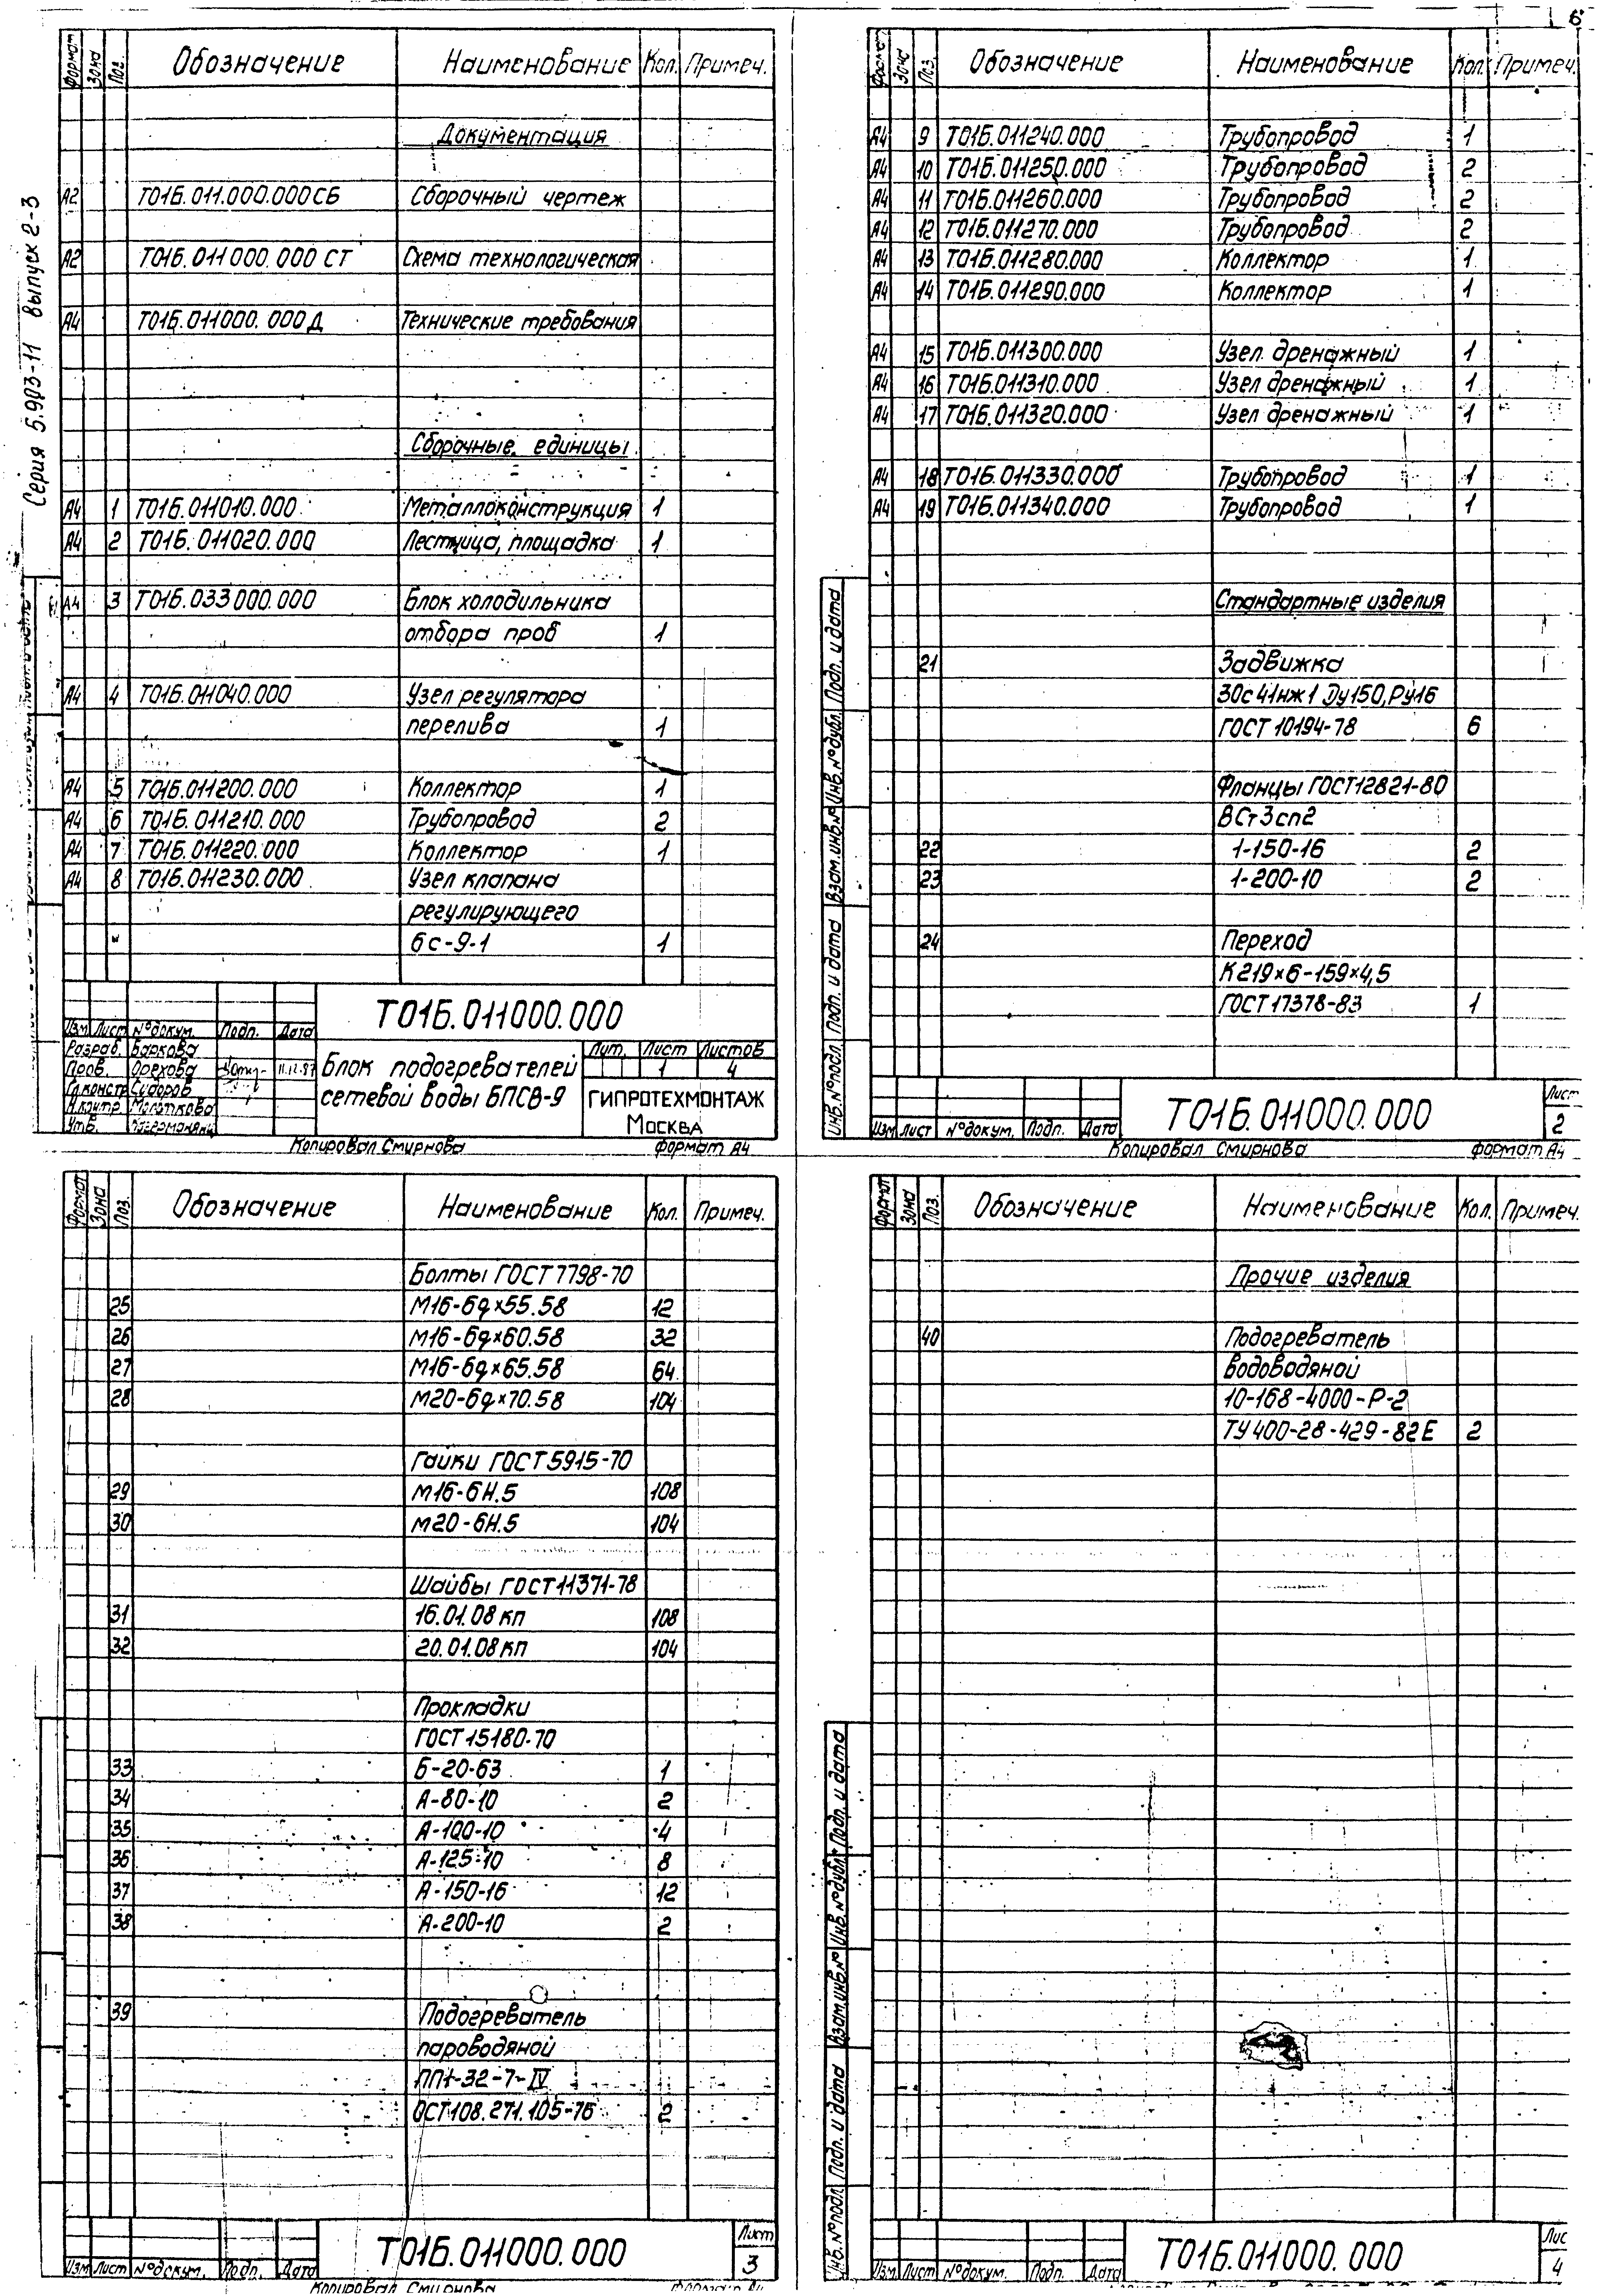 6
Серия 5.903-11 выпуск 2-3
Формат Зона Поз. Обозначение Наименование Кол. Примеч.
Документация
А2 Т01Б.011.000.000СБ Сборочный чертеж
А2 Т01Б.011000.000 СТ Схема технологическая
А4 Т01Б.011000.000 Д Технические требования
Сборочные единицы
А4 1 Т01Б.011010.000 Металлоконструкция 1
А4 2 Т01Б.011020.000 Лестница, площадка 1
А4 3 Т01Б.033000.000 Блок холодильника
отбора проб 1
А4 4 Т01Б.011040.000 Узел регулятора
перелива 1
А4 5 Т01Б.011200.000 Коллектор 1
А4 6 Т01Б.011210.000 Трубопровод 2
А4 7 Т01Б.011220.000 Коллектор 1
А4 8 Т01Б.011230.000 Узел клапана
регулирующего
6с-9-1 1
Т01Б.011000.000
Изм Лист №докум. Подп. Дата
Разраб. Баркова
Пров. Орехова 11.12.87
Гл.констр Сидоров
Н.контр
Утв.
Блок подогревателей
сетевой воды БПСВ-9
Лит. Лист Листов
1 4
ГИПРОТЕХМОНТАЖ
Москва
Копировал Смирнова Формат А4
Формат Зона Поз. Обозначение Наименование Кол. Примеч.
А4 9 Т01Б.011240.000 Трубопровод 1
А4 10 Т01Б.011250.000 Трубопровод 2
А4 11 Т01Б.011260.000 Трубопровод 2
А4 12 Т01Б.011270.000 Трубопровод 2
А4 13 Т01Б.011280.000 Коллектор 1
А4 14 Т01Б.011290.000 Коллектор 1
А4 15 Т01Б.011300.000 Узел дренажный 1
А4 16 Т01Б.011310.000 Узел дренажный 1
А4 17 Т01Б.011320.000 Узел дренажный 1
А4 18 Т01Б.011330.000 Трубопровод 1
А4 19 Т01Б.011340.000 Трубопровод 1
Стандартные изделия
21 Задвижка
30с41нж1 Ду150, Ру16
ГОСТ 10194-78 6
Фланцы ГОСТ12821-80
ВСт3сп2
22 1-150-16 2
23 1-200-10 2
24 Переход
К219×6-159×4,5
ГОСТ 17378-83 1
Инв.№подл. Подп. и дата Взам.инв.№ Инв.№дубл. Подп. и дата
Изм Лист №докум. Подп. Дата
Т01Б.011000.000
Лист
2
Копировал Смирнова Формат А4
Формат Зона Поз. Обозначение Наименование Кол. Примеч.
Болты ГОСТ7798-70
25 М16-6g×55.58 12
26 М16-6g×60.58 32
27 М16-6g×65.58 64
28 М20-6g×70.58 104
Гайки ГОСТ5915-70
29 М16-6Н.5 108
30 М20-6Н.5 104
Шайбы ГОСТ11371-78
31 16.01.08кп 108
32 20.01.08кп 104
Прокладки
ГОСТ15180-70
33 Б-20-63 1
34 А-80-10 2
35 А-100-10 4
36 А-125-10 8
37 А-150-16 12
38 А-200-10 2
39 Подогреватель
пароводяной
ПП1-32-7-IV
ОСТ108.271.105-76 2
Изм Лист №докум. Подп. Дата
Т01Б.011000.000
Лист
3
Копировал Смирнова Формат А4
Формат Зона Поз. Обозначение Наименование Кол. Примеч.
Прочие изделия
40 Подогреватель
водоводяной
10-168-4000-Р-2
ТУ400-28-429-82Е 2
Инв.№подл. Подп. и дата Взам.инв.№ Инв.№дубл. Подп. и дата
Изм Лист №докум. Подп. Дата
Т01Б.011000.000
Лис
4